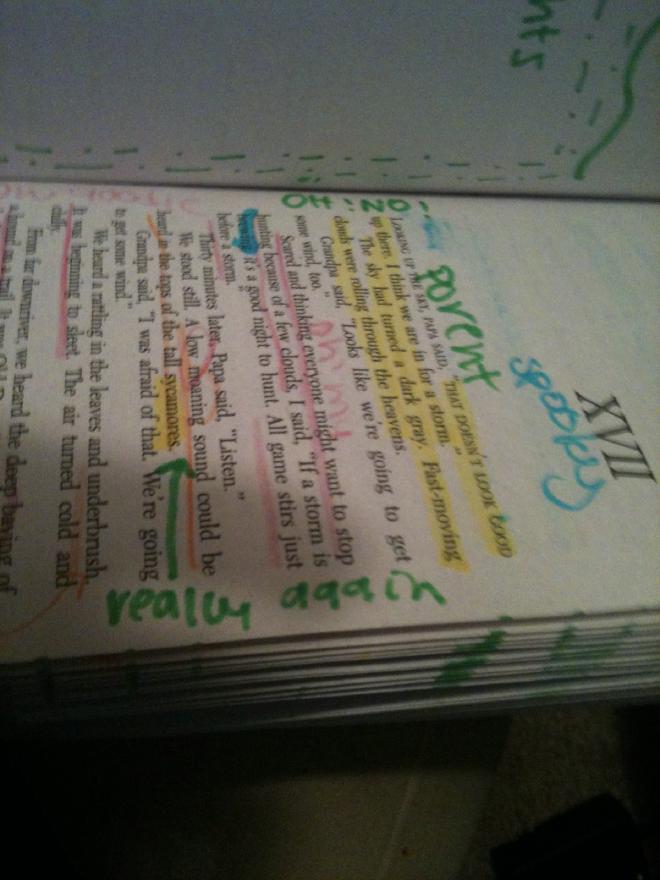 nts
XVII
spooky
parent
LOOKING UP THE SKY, PAPA SAID, "THAT DOESN'T LOOK GOOD
up there. I think we are in for a storm."
The sky had turned a dark gray. Fast-moving
clouds were rolling through the heavens.
Grandpa said, "Looks like we're going to get
some wind, too."
Scared and thinking everyone might want to stop
hunting because of a few clouds, I said, "If a storm is
brewing it's a good night to hunt. All game stirs just
before a storm."
Thirty minutes later, Papa said, "Listen."
We stood still. A low moaning sound could be
heard in the tops of the tall sycamores.
Grandpa said, "I was afraid of that. We're going
to get some wind."
We heard a rattling in the leaves and underbrush.
It was beginning to sleet. The air turned cold and
chilly.
From far downriver, we heard the deep baying of
a hound on a trail. It was Old
oh my
really again